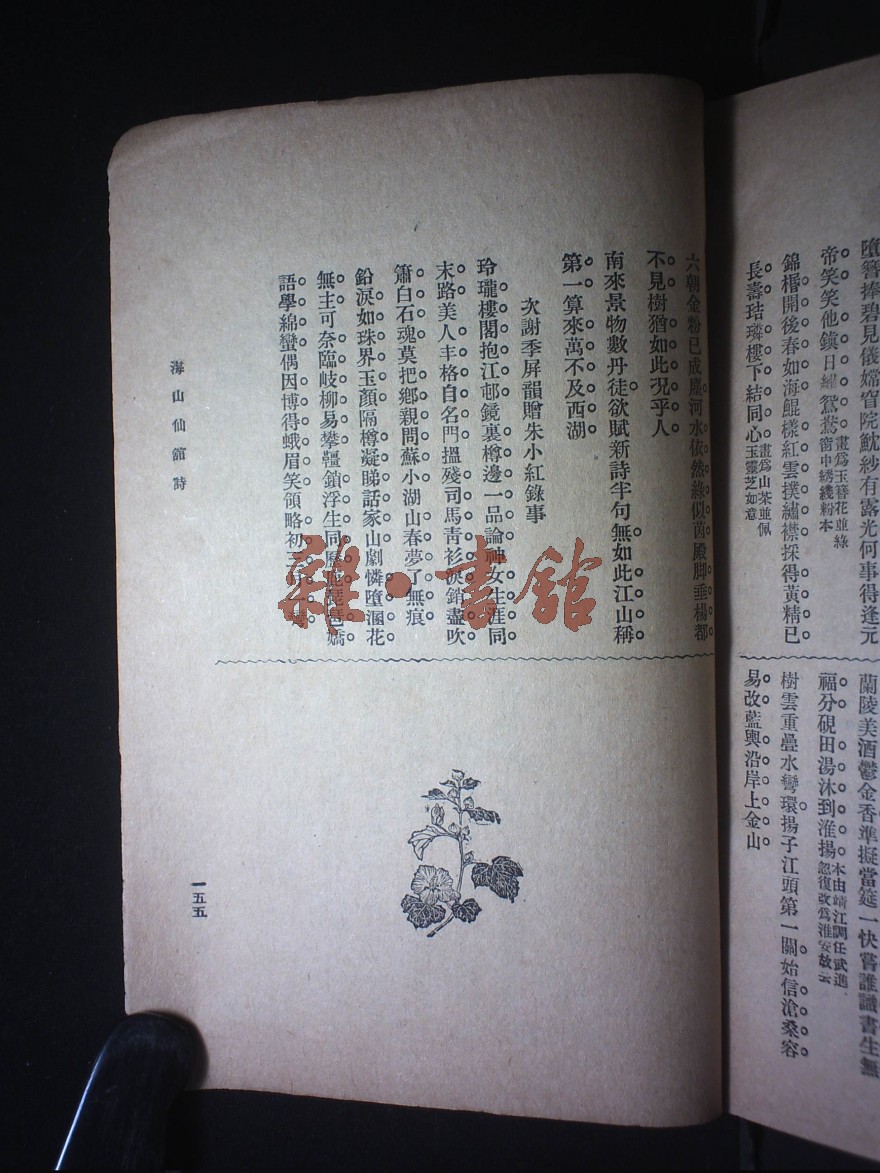 墮簪捧碧見儀嫦窅院魫紗有露光何事得逢元
帝笑笑他鎮日耀鴛鴦畫爲玉簪花並綠
窗中綉綫粉本
錦棔開後春如海鯤樣紅雲撲繡襟採得黃精已
長壽琺璘樓下結同心畫爲山茶並佩
玉靈芝如意
蘭陵美酒鬱金香準擬當筵一快嘗誰識書生無
福分硯田湯沐到淮揚本由靖江調任武進
忽復改爲淮安故云
樹雲重疊水彎環揚子江頭第一關始信滄桑容
易改藍輿沿岸上金山
六朝金粉已成塵河水依然綠似茵殿脚垂楊都
不見樹猶如此況乎人
南來景物數丹徒欲賦新詩半句無如此江山稱
第一算來萬不及西湖
次謝季屏韻贈朱小紅錄事
玲瓏樓閣抱江邨鏡裏樽邊一品論神女生涯同
末路美人丰格自名門搵殘司馬青衫淚銷盡吹
簫白石魂莫把鄉親問蘇小湖山春夢了無痕
鉛淚如珠界玉顏隔樽凝睇話家山劇憐墮溷花
無主可奈臨岐柳易攀韁鎖浮生同歷琵琶嬌
語學綿蠻偶因博得蛾眉笑領略初三月
海山仙館詩
一五五
雜·書館